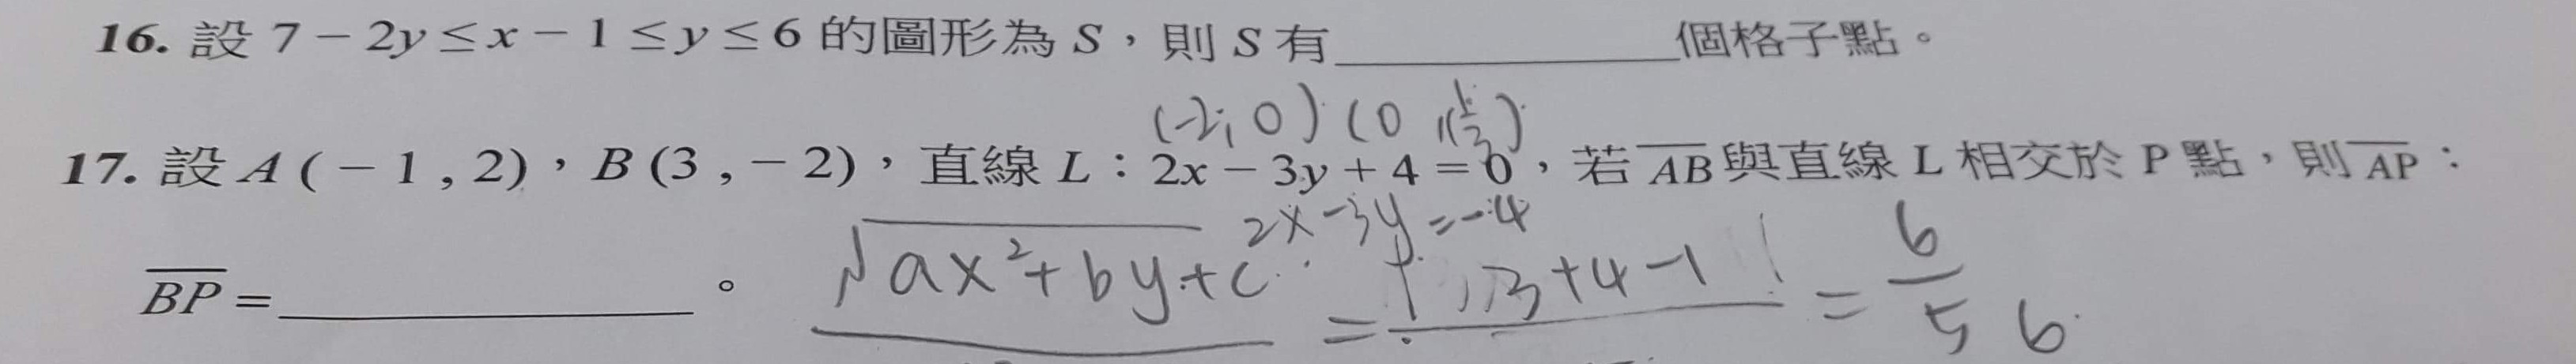 16. 設 7 − 2y ≤ x − 1 ≤ y ≤ 6 的圖形為 S，則 S 有__________個格子點。
(-2, 0) (0
17. 設 A ( − 1 , 2 )，B (3 , − 2)，直線 L：2x − 3y + 4 = 0，若 AB 與直線 L 相交於 P 點，則 AP：
2x -3y = -4
BP = __________。
√ax²+by+c = 3+4-1 = 6/5 6